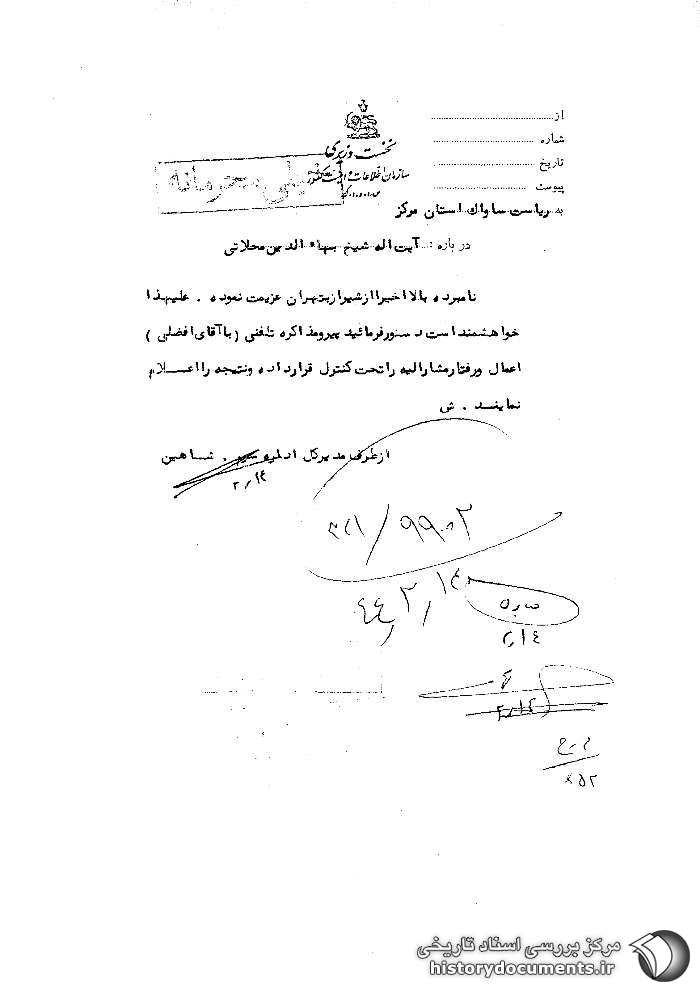 از
شماره
تاریخ
پیوست
نخست وزیری
سازمان اطلاعات و امنیت کشور
خیلی محرمانه
به ریاست ساواک استان مرکز
درباره : آیت اله شیخ بهاء الدین محلاتی
نامبرده بالا اخیرا از شیراز بتهران عزیمت نموده . علیهذا
خواهشمند است دستور فرمائید پیرو مذاکره تلفنی ( با آقای افضلی )
اعمال و رفتار مشارالیه را تحت کنترل قرار داده و نتیجه را اعلام
نمایند . ش
از طرف مدیر کل اداره سوم . شاهین
۲٫۱۴
۳۲۱/۹۹۰۲
۴۴٫۲٫۱۴
۲٫۱۴
۲٫۱۴
مرکز بررسی اسناد تاریخی
historydocuments.ir